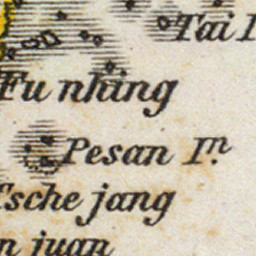 Tai I
Fu nhing
Pesan In.
Tsche jang
n juan